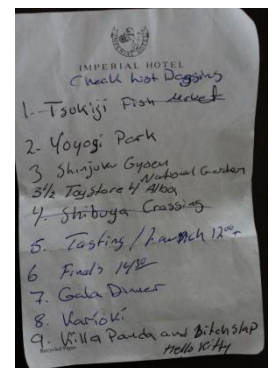 IMPERIAL HOTEL
Check list Dagging
1. Tsukiji Fish Market
2- Yoyogi Park
3 Shinjuku Gyoen
National Garden
3½ Toystore 4 Alba
4. Shibuya Crossing
5. Tasting / Launch 12⁰⁰
6 Finals 14⁰⁰
7. Gala Dinner
8. Karioki
9. Killa Panda and Bitchslap
Hello Kitty